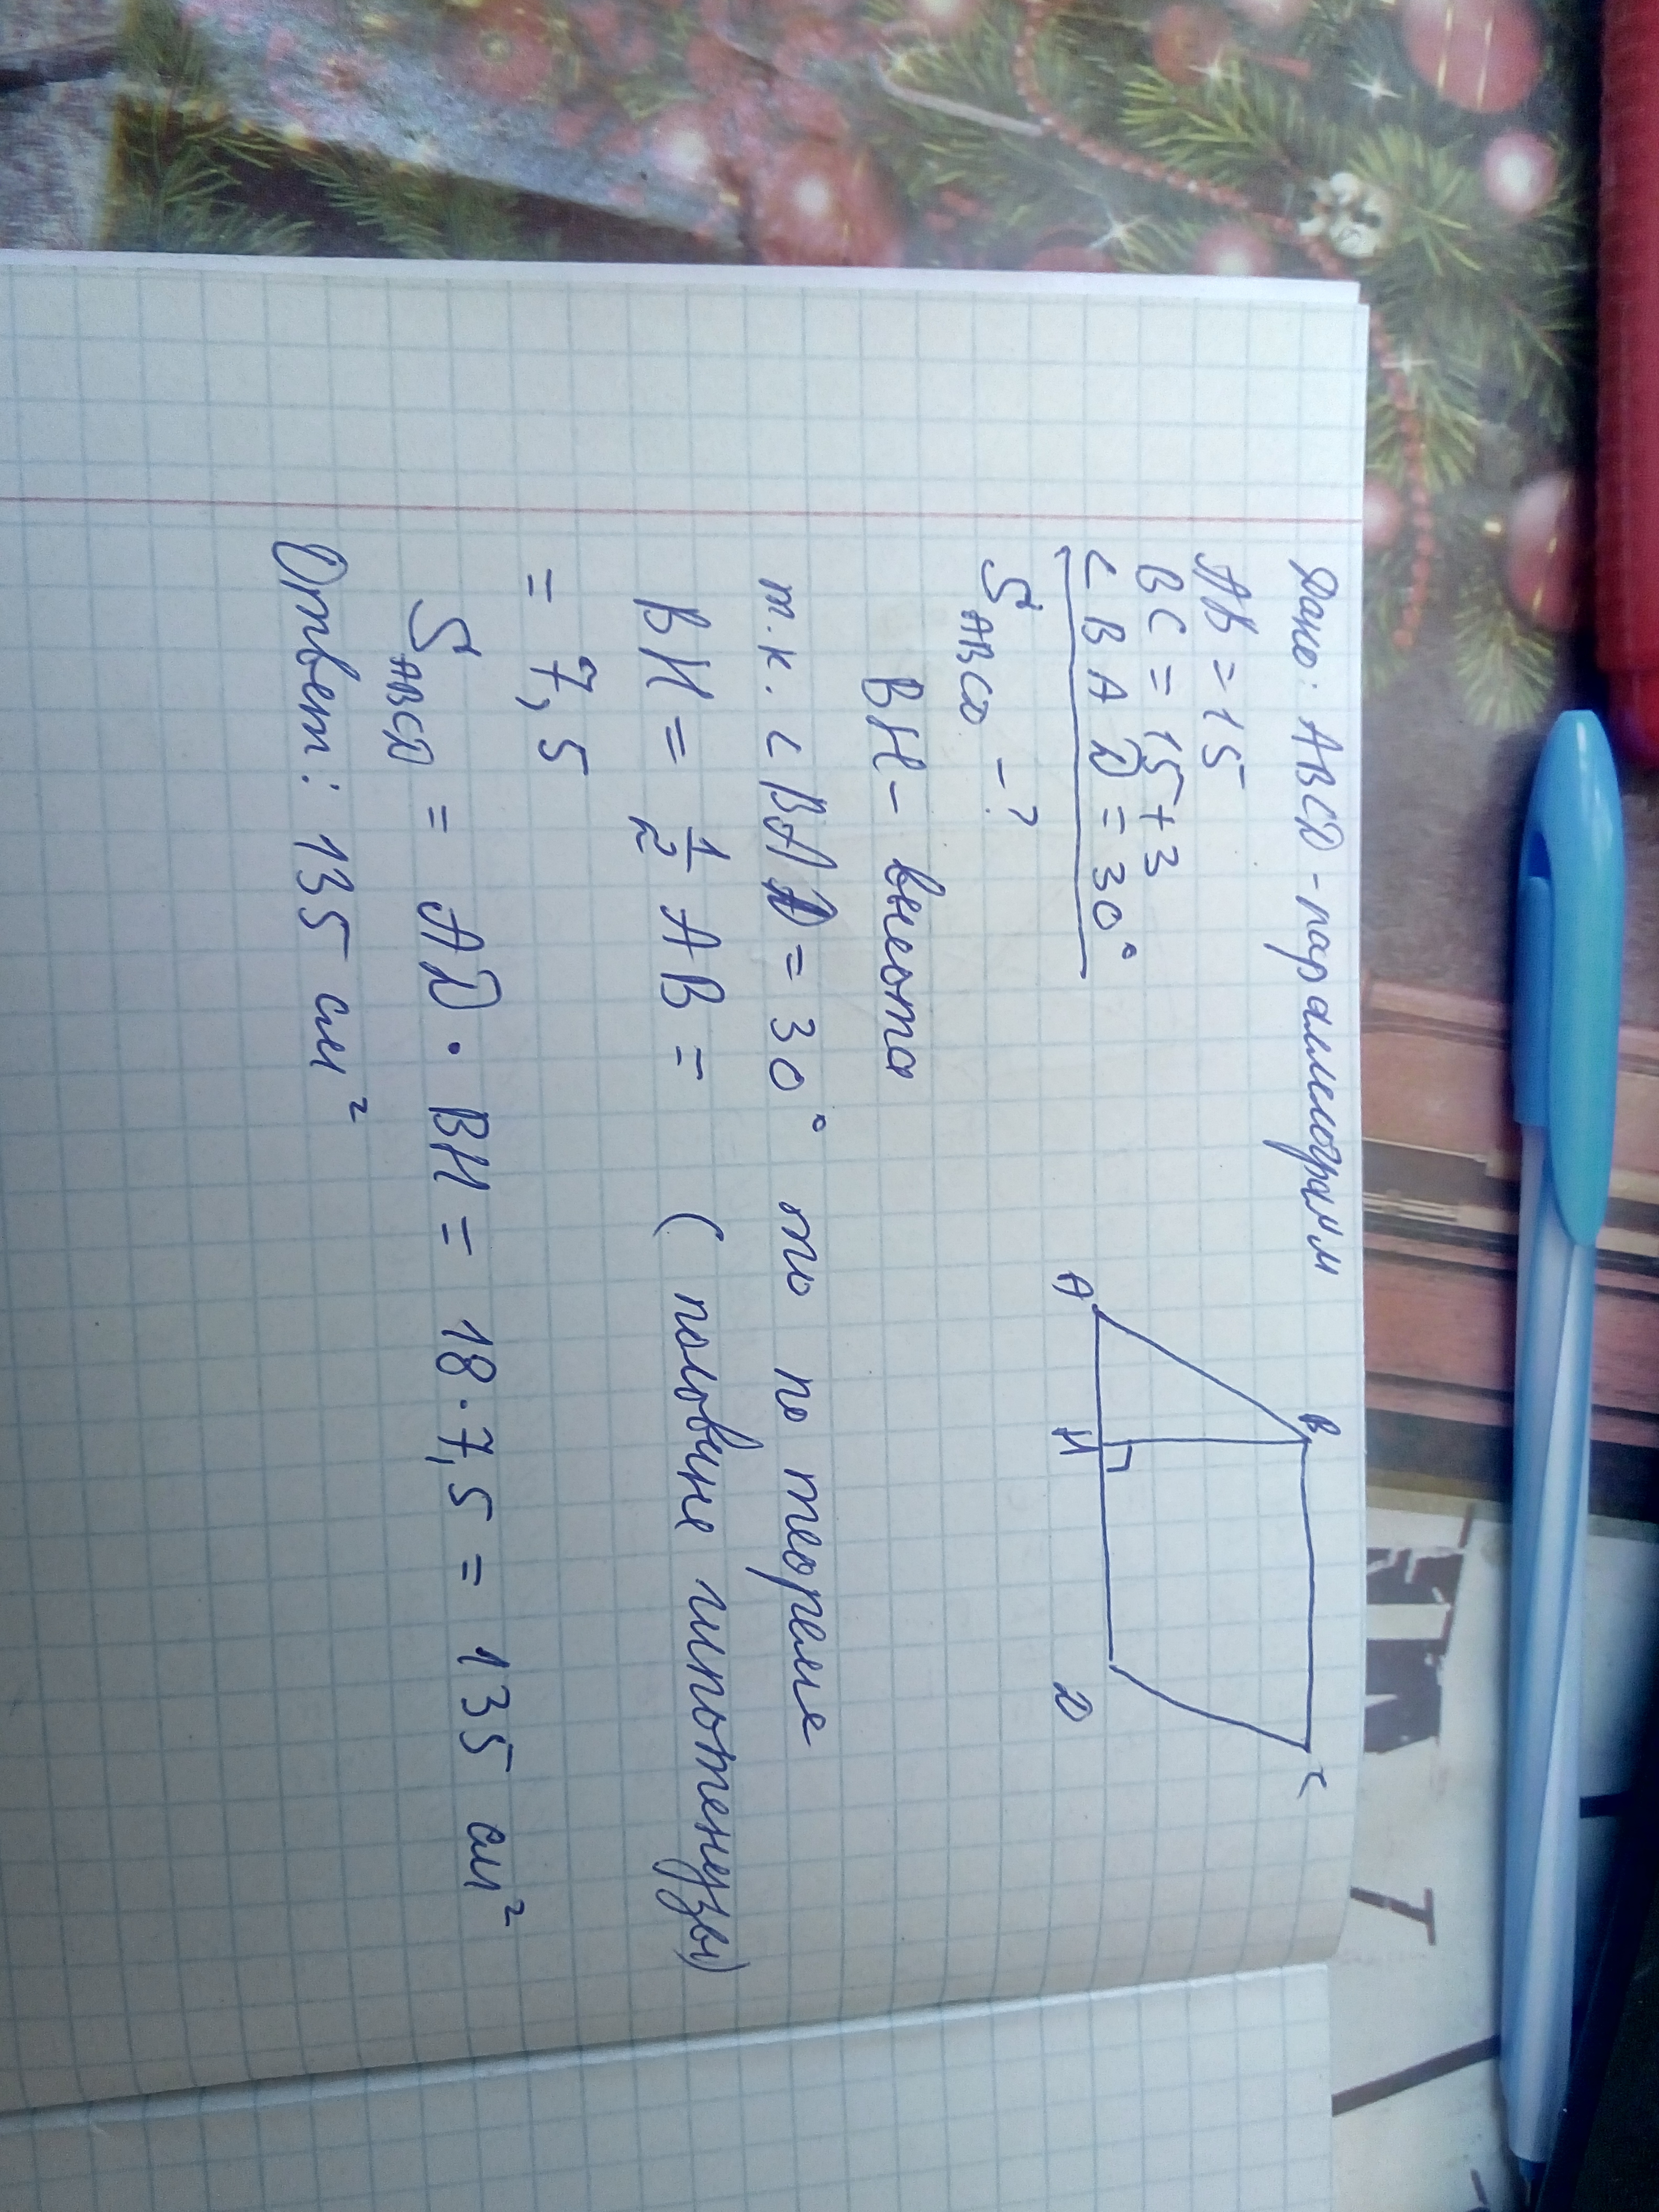 Дано: ABCD - параллелограмм
AB = 15
BC = 15 + 3
∠BAD = 30°
S ABCD - ?
A
B
C
H
D
BH - высота
т.к. ∠BAD = 30° то по теореме
BH = 1/2 AB = (половине гипотенузы)
= 7,5
S ABCD = AD · BH = 18 · 7,5 = 135 см²
Ответ: 135 см²
T